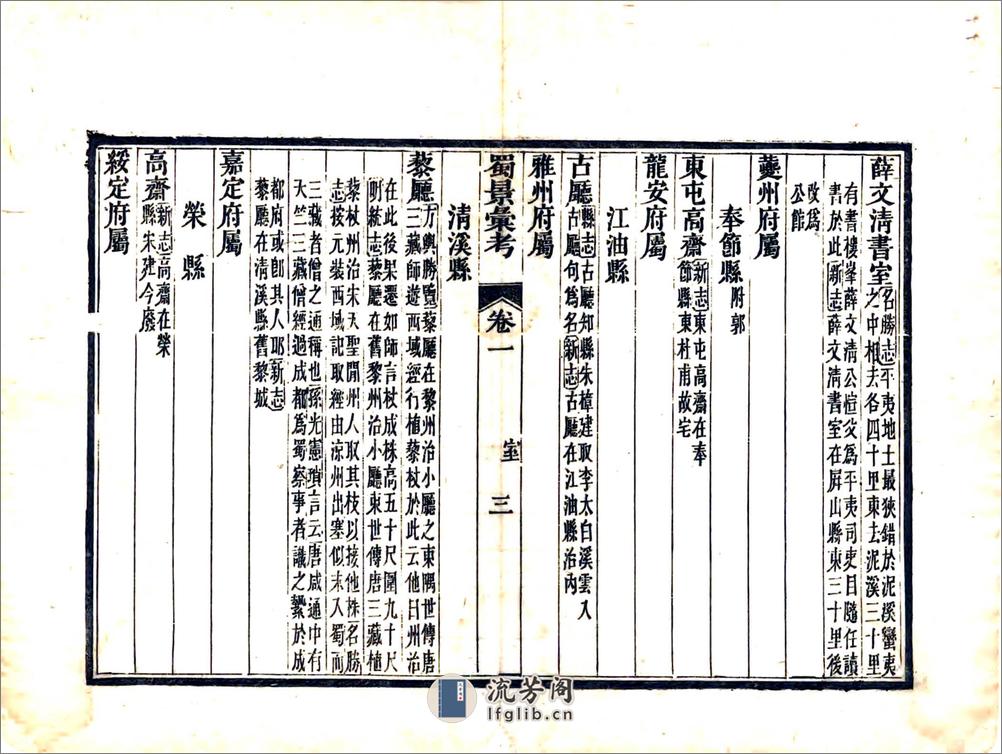 薛文清書室名勝志平夷地土最狹錯於泥溪蠻夷
之中相去各四十里東去泥溪三十里
有書樓峯薛文清公愃父為平夷司吏目隨任讀
書於此新志薛文清書室在屏山縣東三十里後
改為
公館
夔州府屬
奉節縣附郭
東屯高齋新志東屯高齋在奉
節縣東杜甫故宅
龍安府屬
江油縣
古廳縣志古廳知縣朱樟建取李太白溪雲入
古廳句為名新志古廳在江油縣治內
雅州府屬
蜀景彙考 卷一 室 三
清溪縣
藜廳方輿勝覽藜廳在黎州治小廳之東隅世傳唐
三藏師遊西域經行植藜杖於此云他日州治
在此後果遷如師言杖成株高五十尺圍九十尺
明統志藜廳在舊黎州治小廳東世傳唐三藏植
藜杖州治宋天聖間州人取其枝以接他株名勝
志按元裝西域記取經由涼州出塞似未入蜀而
三藏者僧之通稱也孫光憲瑣言云唐咸通中有
大竺三藏僧經過成都為蜀察事者識之縶於成
都府或卽其人耶新志
藜廳在清溪縣舊黎城
嘉定府屬
榮縣
高齋新志高齋在榮
縣宋建今廢
綏定府屬
流芳阁
lfglib.cn